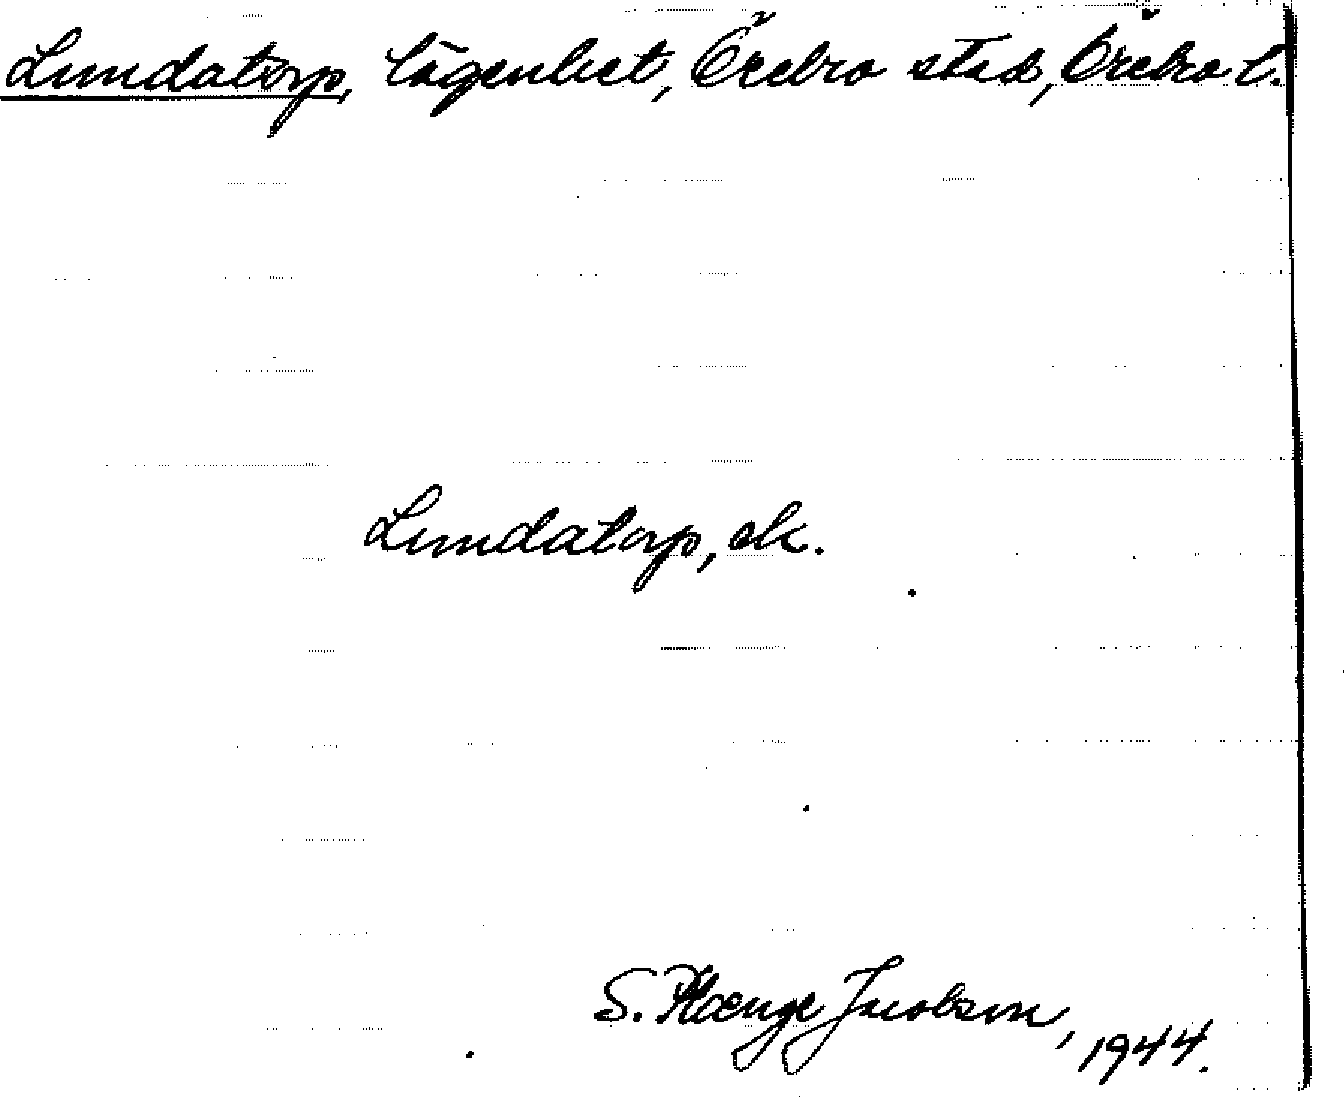 Lundatorp, lägenhet, Örebro stad, Örebro l.
Lundatorp, ek.
S. Plænge Jacobson, 1944.